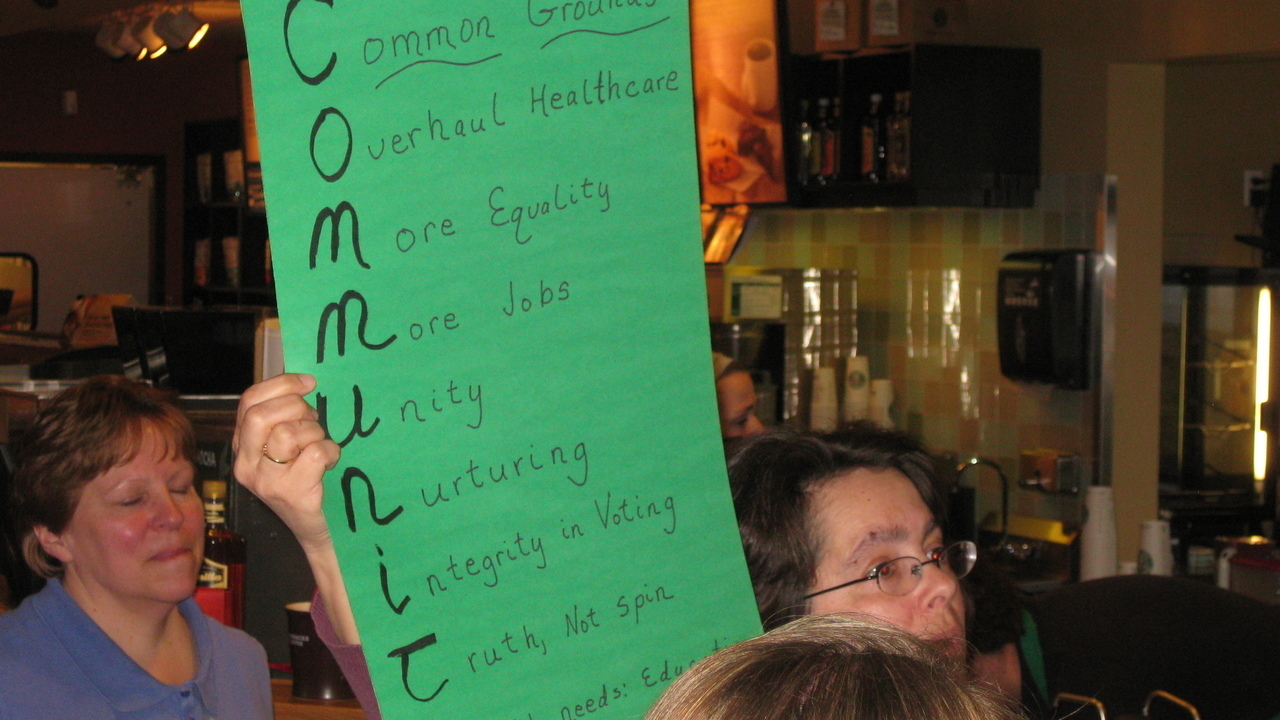 Common Grounds
Overhaul Healthcare
More Equality
More Jobs
Unity
Nurturing
integrity in Voting
Truth, Not Spin
needs: